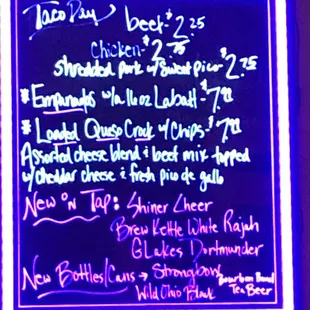 Taco Day beef - $2.25
Chicken - $2.75
shredded pork w/ sweet pico - $2.75
* Empanadas w/ a 16 oz Labatt - $7.00
* Loaded Queso Crock w/ Chips - $7.00
Assorted cheese blend & beef mix topped
w/ cheddar cheese & fresh pico de gallo
New on Tap: Shiner Cheer
Brew Kettle White Rajah
G Lakes Dortmunder
New Bottles/Cans → Strongbow
Wild Ohio Black
Tea Beer